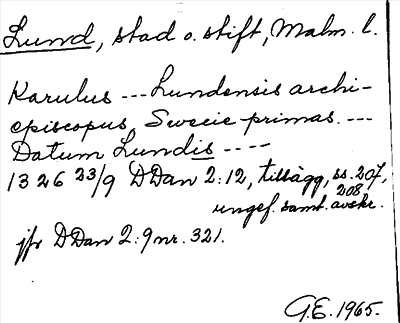 Lund, stad o. stift, Malm. l.
Karulus --- Lundensis archi-
episcopus, Swecie primas. ---
Datum Lundis ----
1326 23/9 DDan 2:12, tillägg, ss. 207,
208
ungef. samt. avskr.
jfr DDan 2:9 nr. 321.
G.E. 1965.